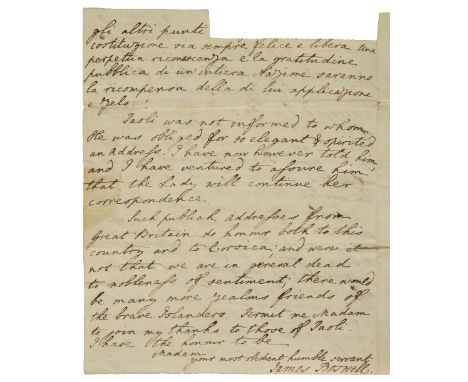 gli altri punti
costituzione sia sempre felice e libera. Una
perpetua riconoscenza e la gratitudine
pubblica di un'intiera Nazione saranno
la ricompensa della di lui applicazione
e zelo.
Paoli was not informed to whom
He was obliged for so elegant & spirited
an Address. I have now however told him,
and I have ventured to assure him,
that the Lady will continue her
correspondence.
Such publick addresses from
Great Britain do honour both to this
country and to Corsica; and were it
not that we are in general dead
to nobleness of sentiment, there would
be many more zealous friends of
the brave Islanders. Permit me Madam
to join my thanks to those of Paoli.
I have the honour to be
Madam
your most obedient humble servant
James Boswell.